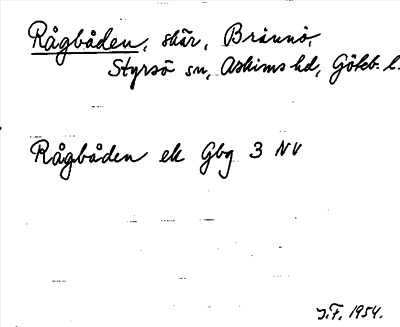 Rågbåden, skär, Brännö,
Styrsö sn, Askims hd, Göteb. l.
Rågbåden ek Gbg 3 NV
J.F. 1954.